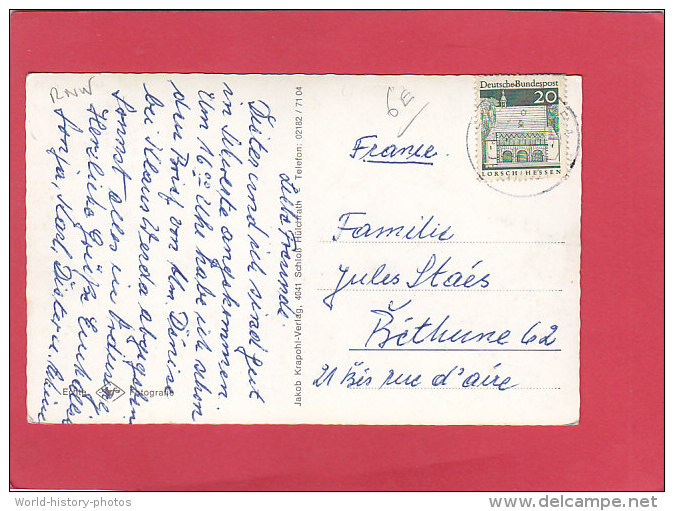 RNW
Liebe Freunde.
Dieter und ich sind gut
in Silvesta angekommen
Um 16.00 Uhr habe ich schon
den Brief von Denise
bei Klaus Werda abgegeben
Sonst alles in Ordnung
Herzliche Grüße Euch allen
Sonja, Karl Dieter u.
Echte Fotografie
Jakob Krapohl-Verlag, 4041 Schloß Hülchrath Telefon: 02182 / 71 04
Deutsche Bundespost
20
LORSCH/HESSEN
France.
Familie
Jules Staés
Béthune 62
21 Bis rue d'aire
World-history-photos
© delcampe.net